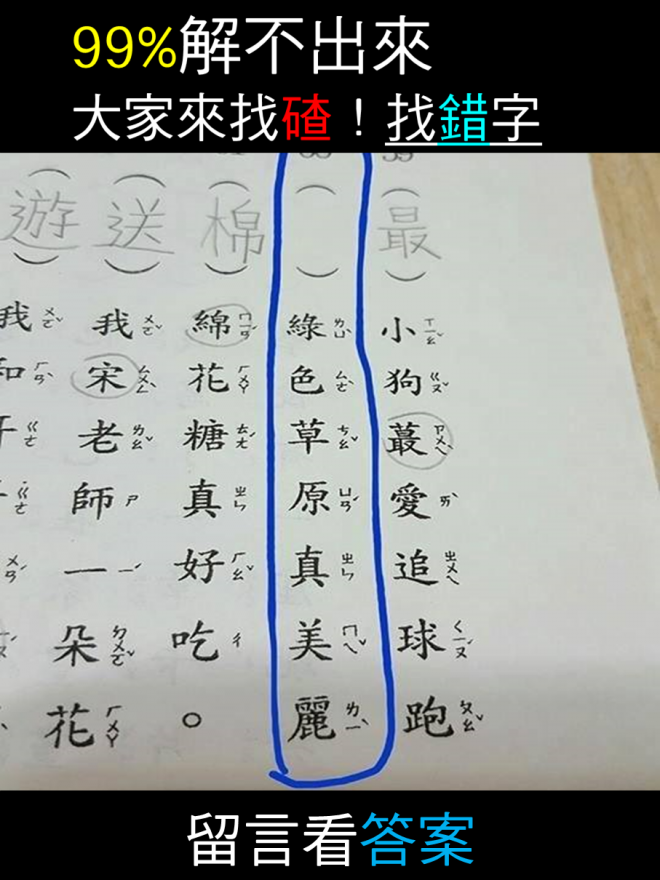 99%解不出來
大家來找碴！找錯字
（最）小狗蕞愛追球跑
（ ）綠色草原真美麗
（棉）綿花糖真好吃。
（送）我宋老師一朵花
（遊）我和
留言看答案